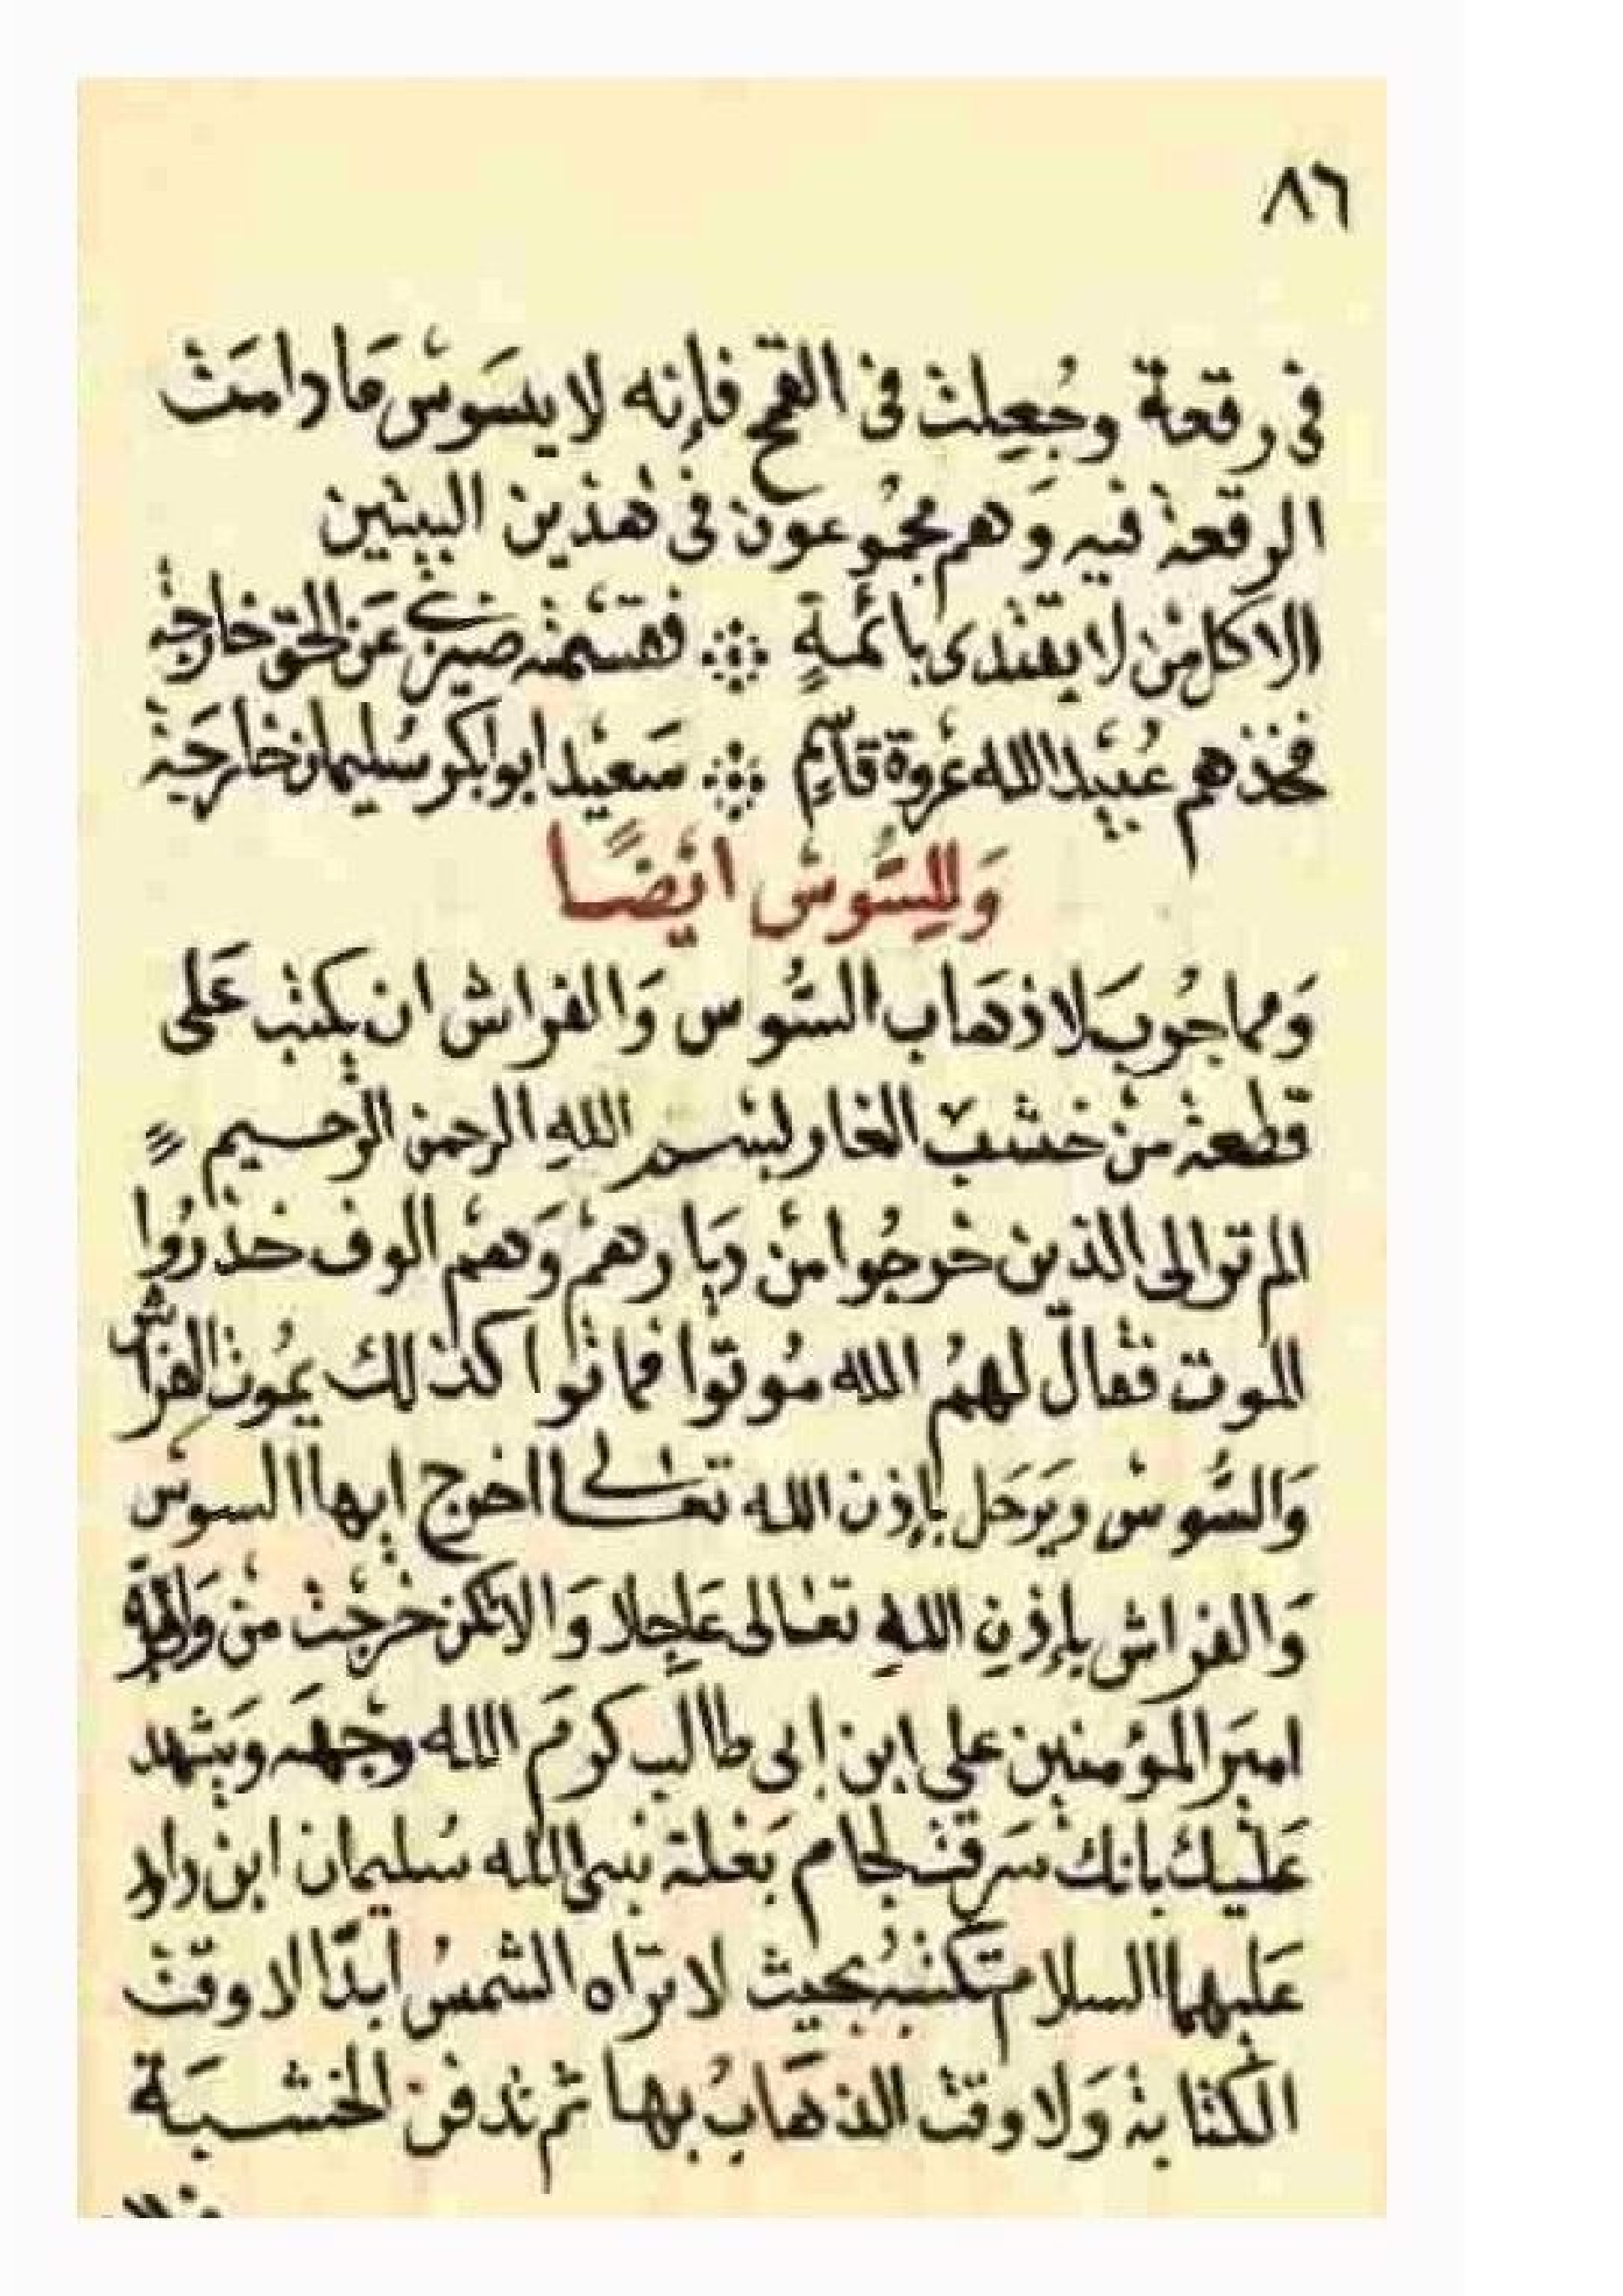 ٨٦
في رقعة وجُعِلت في القمح فإنه لا يسَوسْ مَا دامَتْ
الرقعة فيه وَهم مجمُوعون في هٰذين البيتين
الا كل منْ لا يقتدى بائمةٍ فقسْمته ضيزى عَن الحق خارجه
فخذهم عُبَيْد الله عُرْوة قاسِمٌ سَعيْد ابو بكر سُليمان خارجَة
وَللِسَّوسْ ايْضًا
وَمما جُرب لاذهَاب السُّوس وَالفراش ان يكتب عَلى
قطعة منْ خشبَ الغار بسْمِ اللهِ الرحمن الرحيم
الم تر الى الذين خرجُوا منْ ديَارهمْ وَهمْ الوف حذرُوا
الموت فقال لهمُ الله مُوتوا فماتوا كذلك يمُوت الفراش
وَالسُّوسْ ويَرحَل بإذن الله تعَالى اخرج ايها السوسْ
وَالفراش بإِذنِ اللهِ تعالى عَاجِلا وَالا تكن خرجْت منْ
اميَر المؤمنين علي ابن ابى طالب كرمَ الله وجْهَه ويَشْهد
عَليْك بانك سَرقت لجام بَغلة نبي الله سُليمان ابن داود
عَليهما السلام تكتبُه بحيث لا تراه الشمسُ ابدًا لا وقت
الكتابة وَلا وقت الذهَابُ بها ثم تدفن الخشبَة